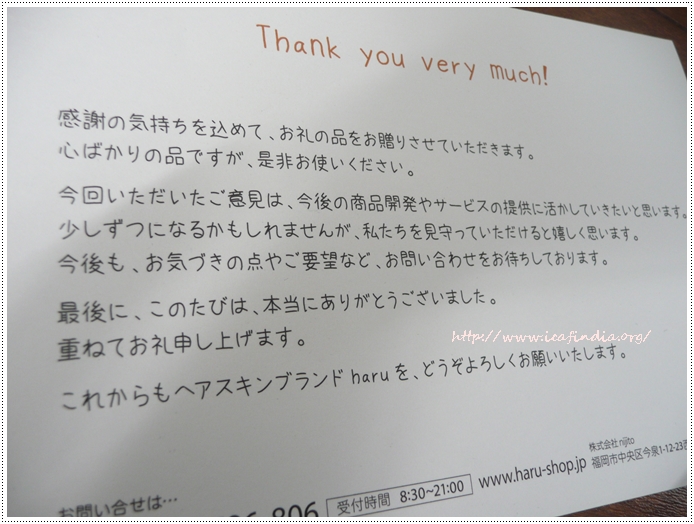 Thank you very much!
感謝の気持ちを込めて、お礼の品をお贈りさせていただきます。
心ばかりの品ですが、是非お使いください。
今回いただいたご意見は、今後の商品開発やサービスの提供に活かしていきたいと思います。
少しずつになるかもしれませんが、私たちを見守っていただけると嬉しく思います。
今後も、お気づきの点やご要望など、お問い合わせをお待ちしております。
最後に、このたびは、本当にありがとうございました。
重ねてお礼申し上げます。
http://www.icafindia.org/
これからもヘアスキンブランドharuを、どうぞよろしくお願いいたします。
お問い合せは…
806
受付時間 8:30~21:00
www.haru-shop.jp
株式会社 nijito
福岡市中央区今泉1-12-23